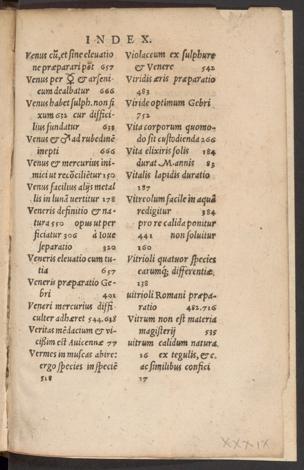 INDEX.
Venus cũ, et sine eleuatio
ne præparari põt 657
Venus per ☿ & arseni-
cum dealbatur 666
Venus habet sulph. non fi
xum 632 cur diffici-
lius fundatur 638
Venus & ♂ ad rubedinẽ
inepti 666
Venus & mercurius ini-
mici ut recõciliẽtur 150
Venus facilius alijs metal
lis in lunã uertitur 178
Veneris definitio & na-
tura 550 opus ut per
ficiatur 306 à Ioue
separatio 320
Veneris eleuatio cum tu-
tia 657
Veneris præparatio Ge-
bri 401
Veneri mercurius diffi
culter adhæret 544.618
Veritas mẽdacium & vi-
cißim est Auicennæ 77
Vermes in muscas abire:
ergo species in speciẽ
518
Violaceum ex sulphure
& Venere 542
Viridis æris præparatio
483
Viride optimum Gebri
752
Vita corporum quomo-
do sit custodienda 266
Vita elixiris solis 184
durat M. annis 83
Vitalis lapidis duratio
187
Vitreolum facile in aquã
redigitur 384
pro re calida ponitur
441 non soluitur
160
Vitrioli quatuor species
earumq; differentiæ.
138
uitrioli Romani præpa-
ratio 482.716
Vitrum non est materia
magisterij 535
uitrum calidum natura.
16 ex tegulis, & c.
ac similibus confici
17
XXXIX